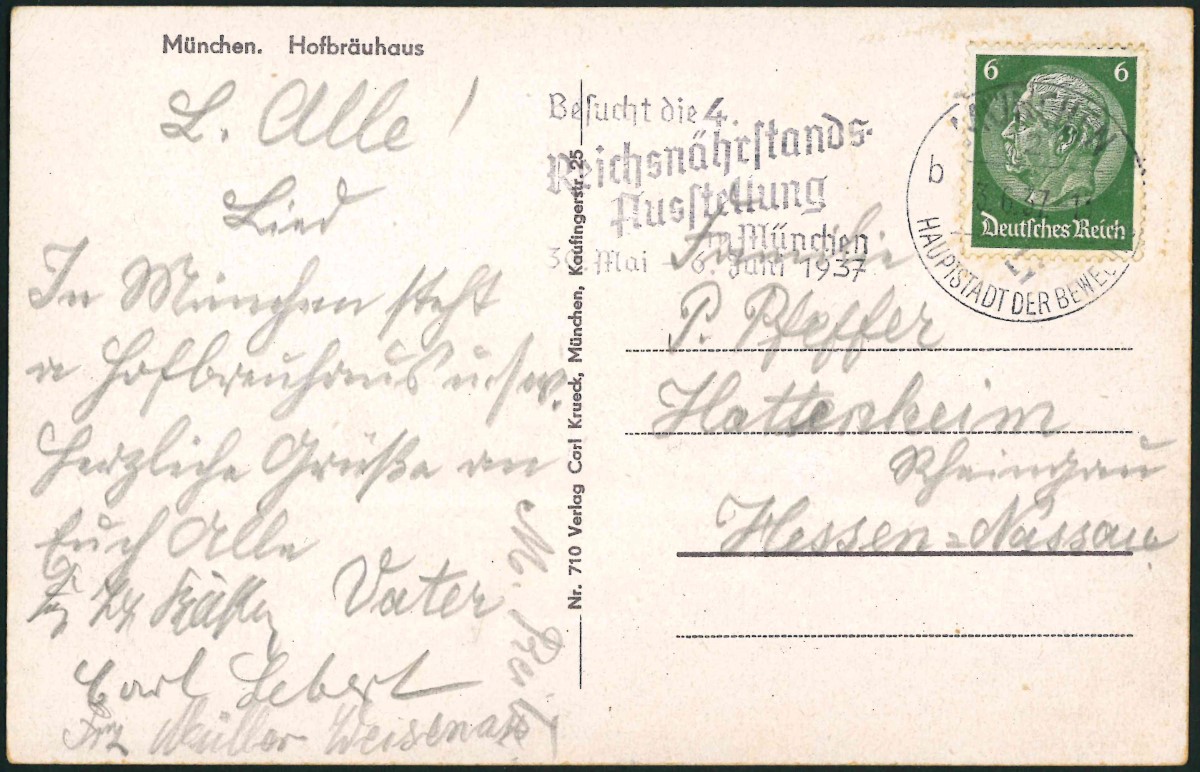 München. Hofbräuhaus
L. Alle!
Lied
In München steht
a Hofbreuhaus u.s.w.
Herzliche Grüße an
Euch Alle
Vater
Carl Lebert
Müller Weisenau
M.
Nr. 710 Verlag Carl Krueck, München, Kaufingerstr. 25
Besucht die 4.
Reichsnährstands-
Ausstellung
in München
30. Mai - 6. Juni 1937
6 6
Deutsches Reich
MÜNCHEN
b
HAUPTSTADT DER BEWEGUNG
Familie
P. Pfeffer
Hattenheim
Rheingau
Hessen-Nassau